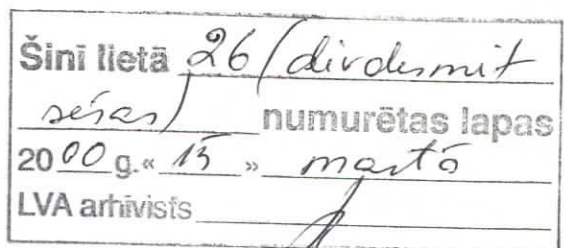 Šinī lietā 26 (divdesmit
sešas) numurētas lapas
2000 g. « 15 » martā
LVA arhivists